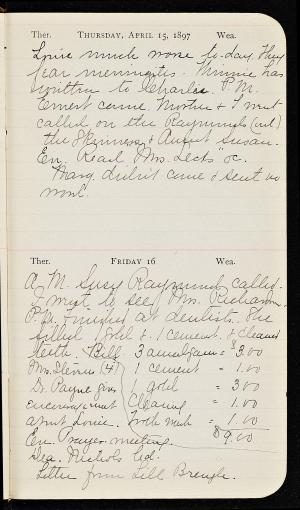 Ther. THURSDAY, APRIL 15, 1897 Wea.
Louie much worse to-day. They
fear meningitis. Minnie has
written to Charles. P.M.
Ernest came. Mother & I went
called on the Raymonds (out)
the Skinners & Aunt Susan.
Ev. Read Mrs. "
Marg. didn't come & sent no
word.
Ther. FRIDAY 16 Wea.
A.M. Susy Raymond called.
I went to see Mrs. Richardson.
P.M. Finished at dentist's. She
filled 1 gold & 1 cement. & cleaned
teeth. Bill 3 amalgam = $3.00
Mrs. Stevens (4) 1 cement = 1.00
Dr. Payne gives 1 gold = 3.00
encouragement Cleaning = 1.00
about Louie. Tooth wash = 1.00
Ev. Prayer meeting. $9.00
Dea. Nichols led.
Letter from Lill